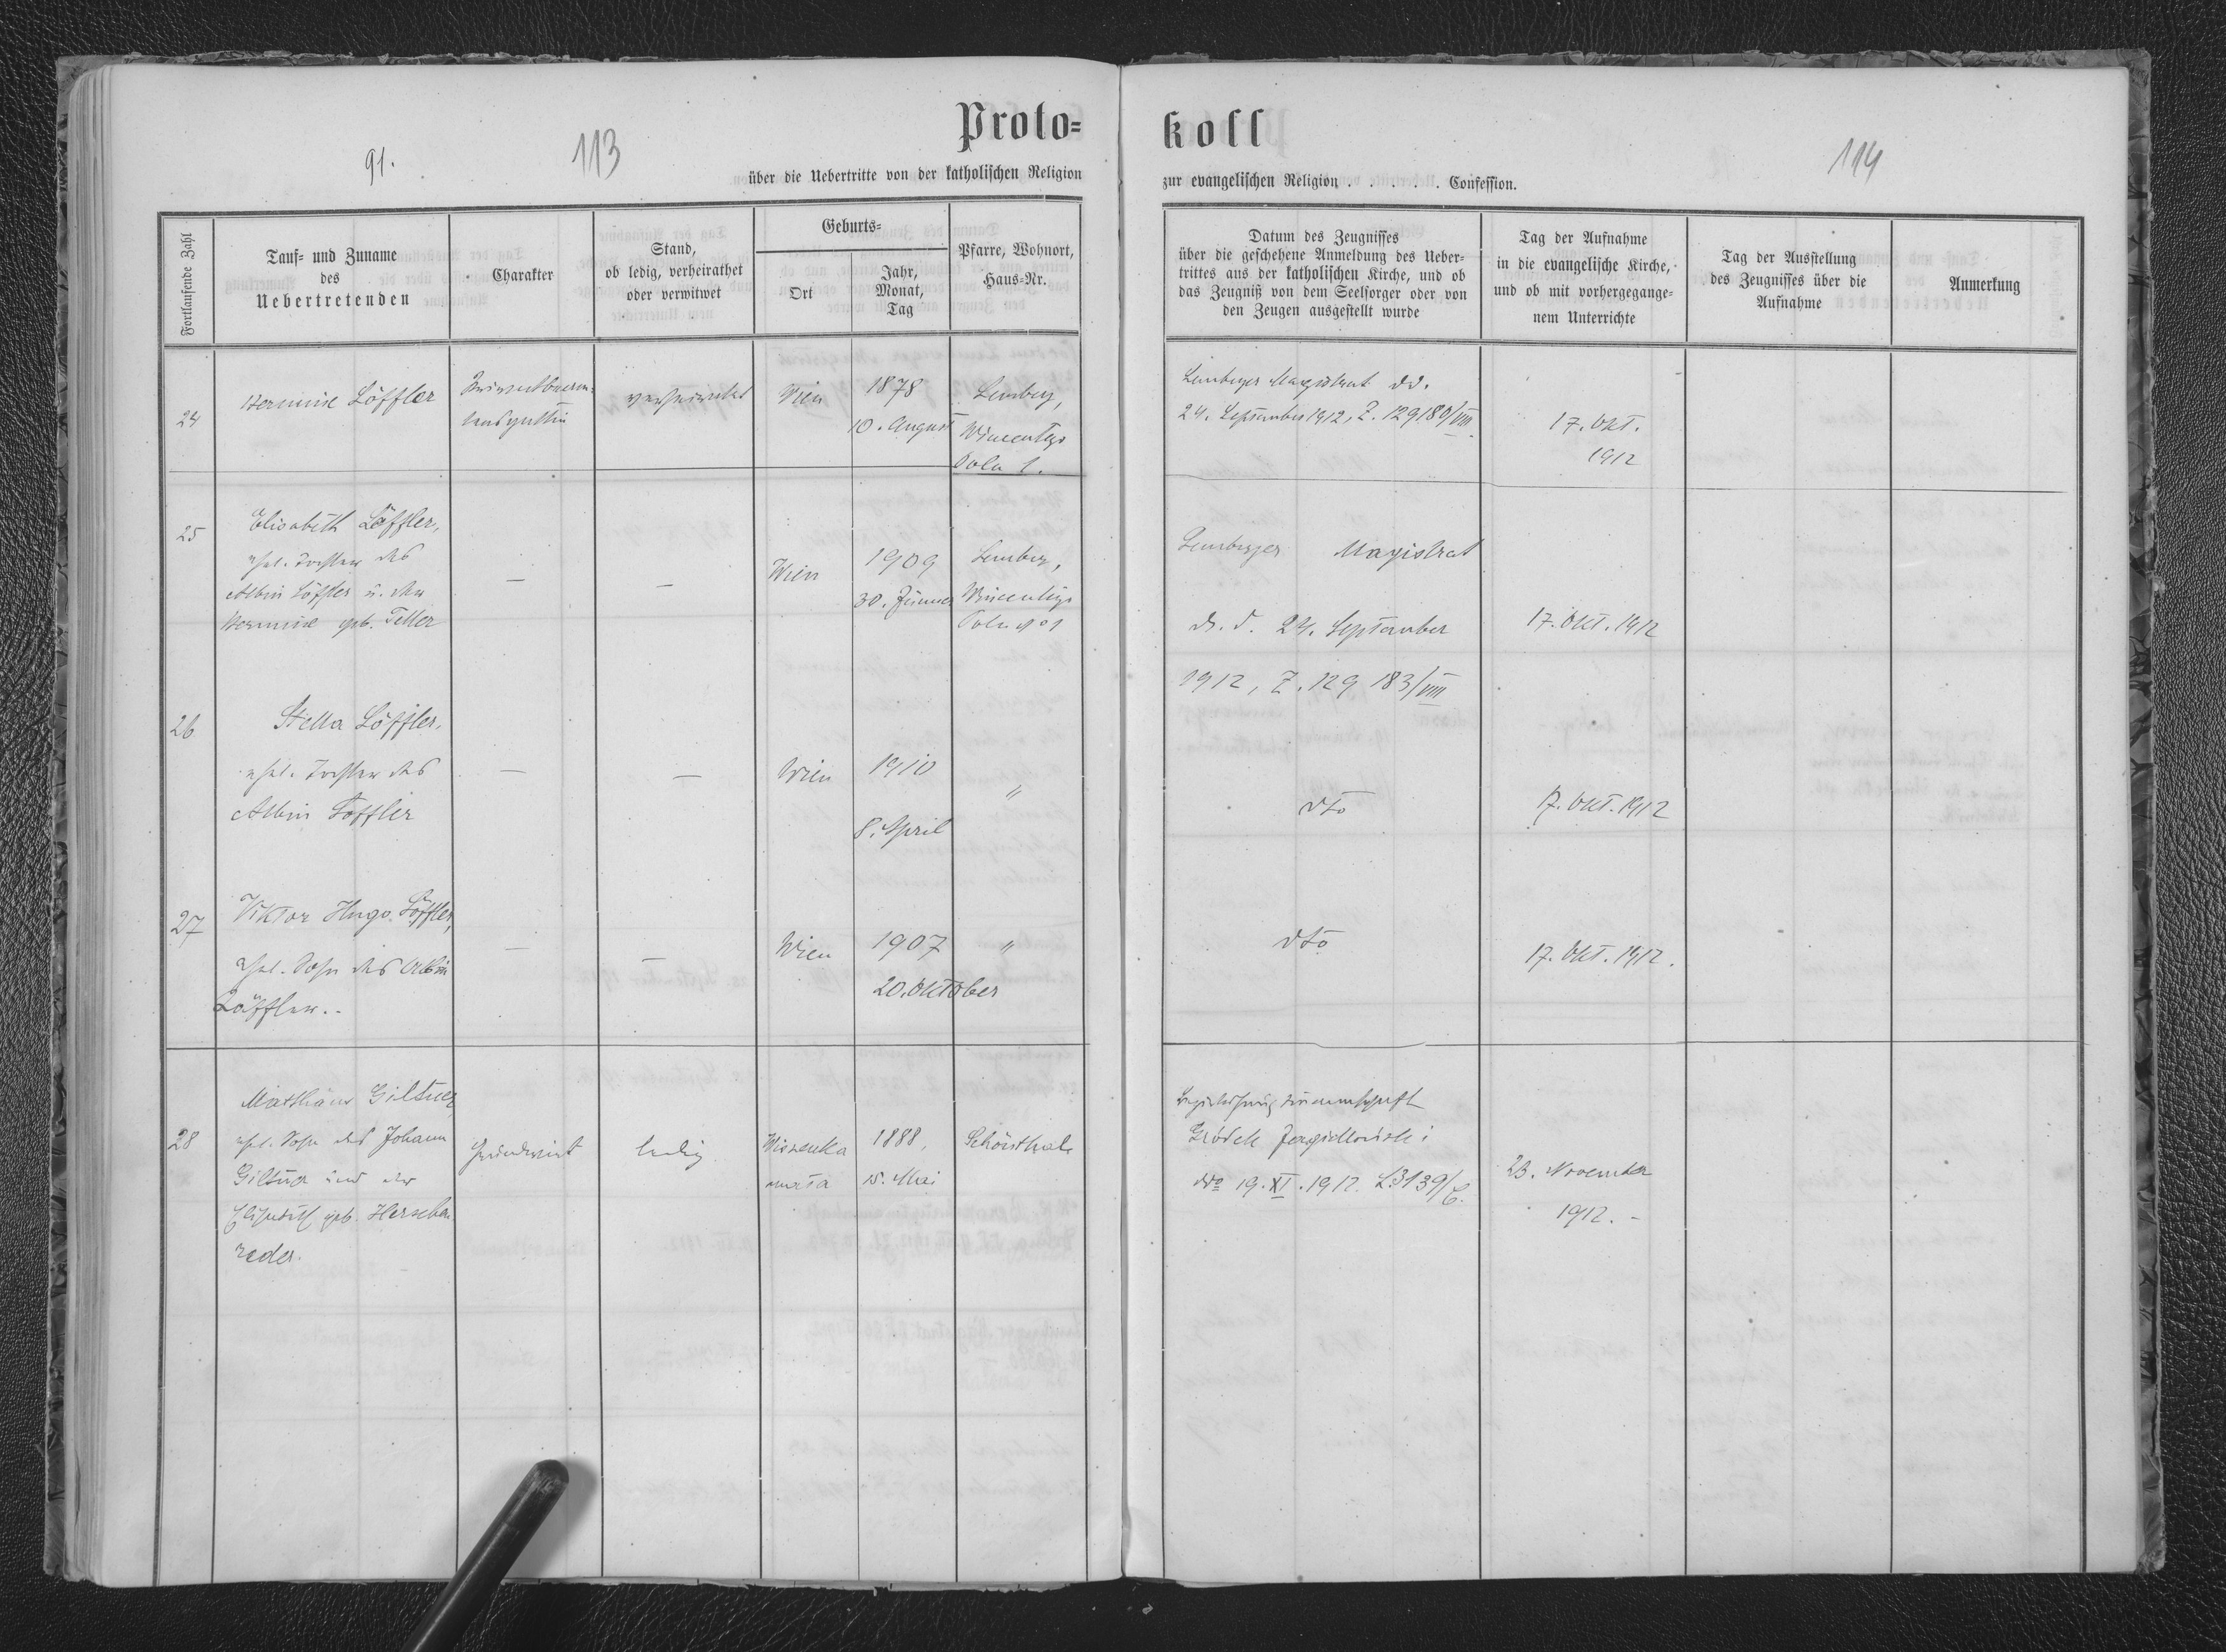 Proto-
koll
91.
113
114
über die Uebertritte von der katholischen Religion
zur evangelischen Religion . . . . . . Confession.
Fortlaufende Zahl
Tauf- und Zuname
des
Uebertretenden
Charakter
Stand,
ob ledig, verheirathet
oder verwitwet
Geburts-
Ort
Jahr,
Monat,
Tag
Pfarre, Wohnort,
Haus-Nr.
Datum des Zeugnisses
über die geschehene Anmeldung des Ueber-
trittes aus der katholischen Kirche, und ob
das Zeugniß von dem Seelsorger oder von
den Zeugen ausgestellt wurde
Tag der Aufnahme
in die evangelische Kirche,
und ob mit vorhergegange-
nem Unterrichte
Tag der Ausstellung
des Zeugnisses über die
Aufnahme
Anmerkung
24
Hermine Löffler
Privatbeam-
tensgattin
verheiratet
Wien
1878
10. August
Lemberg,
Wincentego
Pola 1.
Lemberger Magistrat dd.
24. September 1912, Z. 129180/VIII
17. Okt.
1912
25
Elisabeth Löffler,
ehel. Tochter des
Albin Löffler u. der
Hermine geb. Teller
—
—
Wien
1909
30. Jänner
Lemberg,
Wincentego
Pola No 1
Lemberger Magistrat
d. d. 24. September
1912, Z. 129 183/VIII
17. Okt. 1912
26
Stella Löffler,
ehel. Tochter des
Albin Löffler
—
—
Wien
1910
8. April
"
dto
17. Okt. 1912
27
Viktor Hugo Löffler,
ehel. Sohn des Albin
Löffler.-
—
—
Wien
1907
20. Oktober
"
dto
17. Okt. 1912.
28
Matthäus
ehel. Sohn des Johann
und der
Elisabeth geb.
Grundwirt
ledig
Wiszenka
mała
1888,
15. Mai
Schönthal
Bezirkshauptmannschaft
Gródek Jagielloński
ddo 19. XI. 1912. L. 3139/
23. November
1912. -